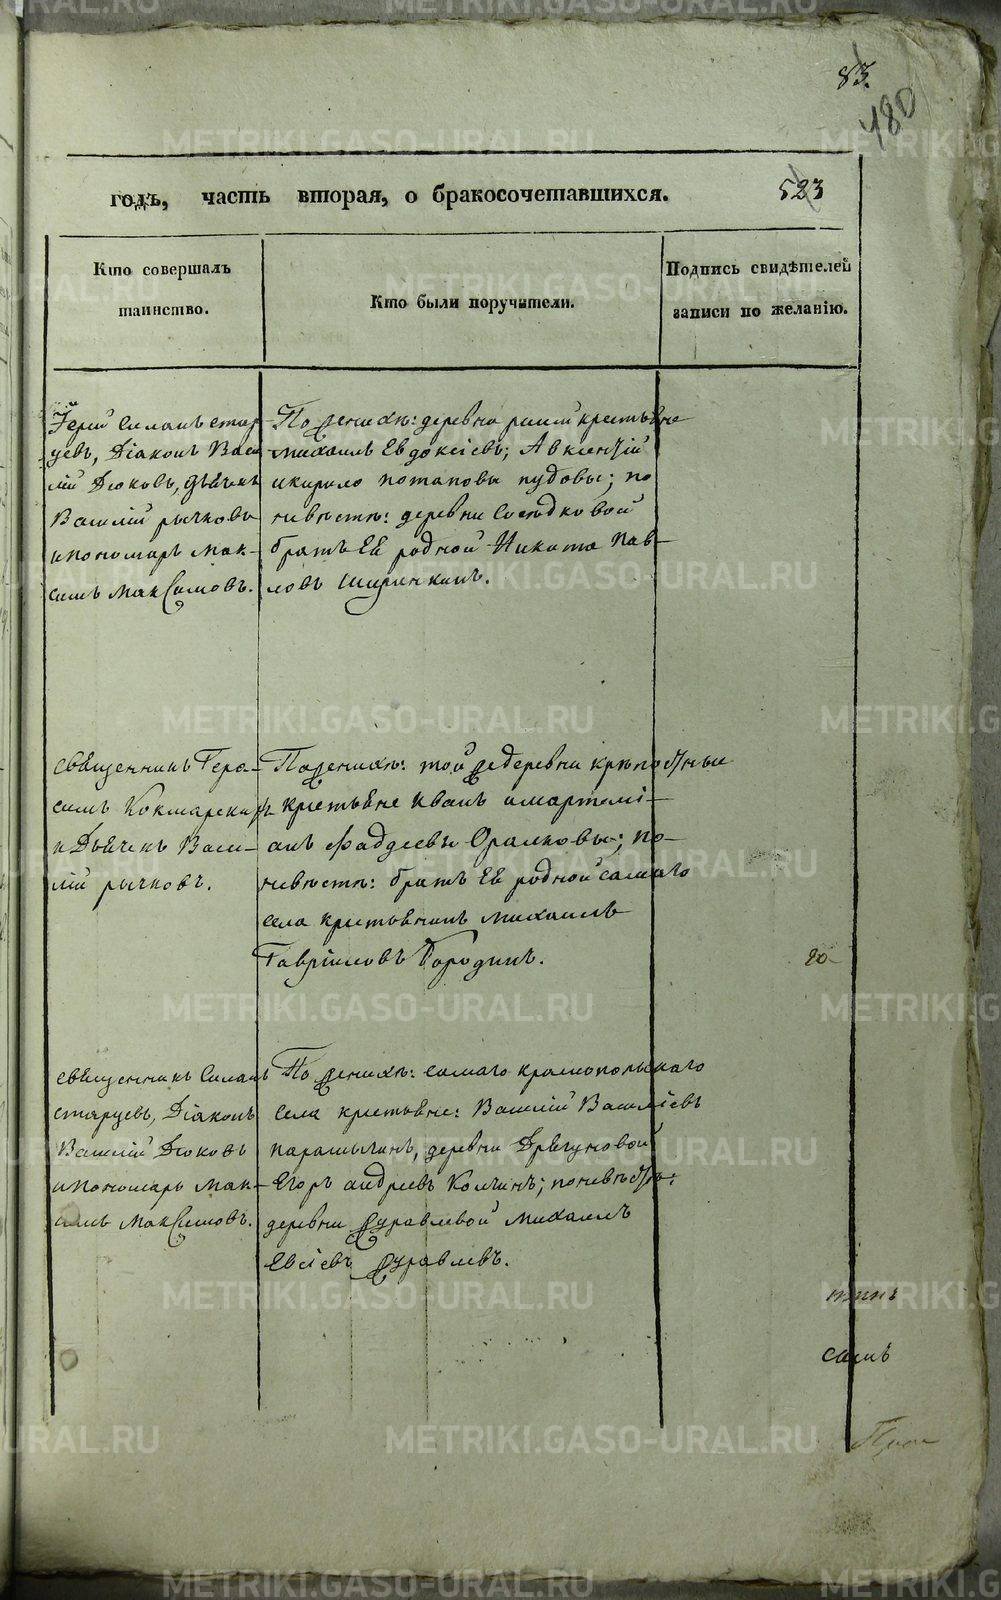 83.
480
годъ, часть вторая, о бракосочетавшихся.
523
Кто совершалъ
таинство.
Кто были поручители.
Подпись свидѣтелей
записи по желанію.
Іерей Силанъ стар-
цевъ, Діаконъ Васи-
лій Дюковъ, дьячекъ
Василій рычковъ
и пономарь мак-
симъ макСимовъ.
По женихѣ: деревни крестьяне
михаилъ Евдокеіевъ; Авксентій
и кирило потаповы пудовы; по
невѣстѣ: деревни Соседковой
братъ Ея родной Никита Пав-
ловъ Ширинкинъ.
свѣщенникъ Гера-
симъ Кокшарскій
и Дьячекъ Васи-
лій рычковъ.
По женихѣ: той же деревни крѣпостные
крестьяне Иванъ и
анъ Фаддеевы; по
невѣстѣ: братъ Ея родной самаго
села крестьянинъ михаилъ
Гавріиловъ Бородинъ.
20
свѣщенникъ Силанъ
старцевъ, Діаконъ
Василій Дюковъ
и пономарь мак-
симъ макСимовъ.
По женихѣ: самаго краснопольскаго
села крестьяне: Василій Василіевъ
деревни Дрягуновой
Егоръ андреевъ Колчинъ; по невѣстѣ:
деревни Журавлевой михаилъ
Евсіевъ Журавлевъ.
симъ
METRIKI.GASO-URAL.RU